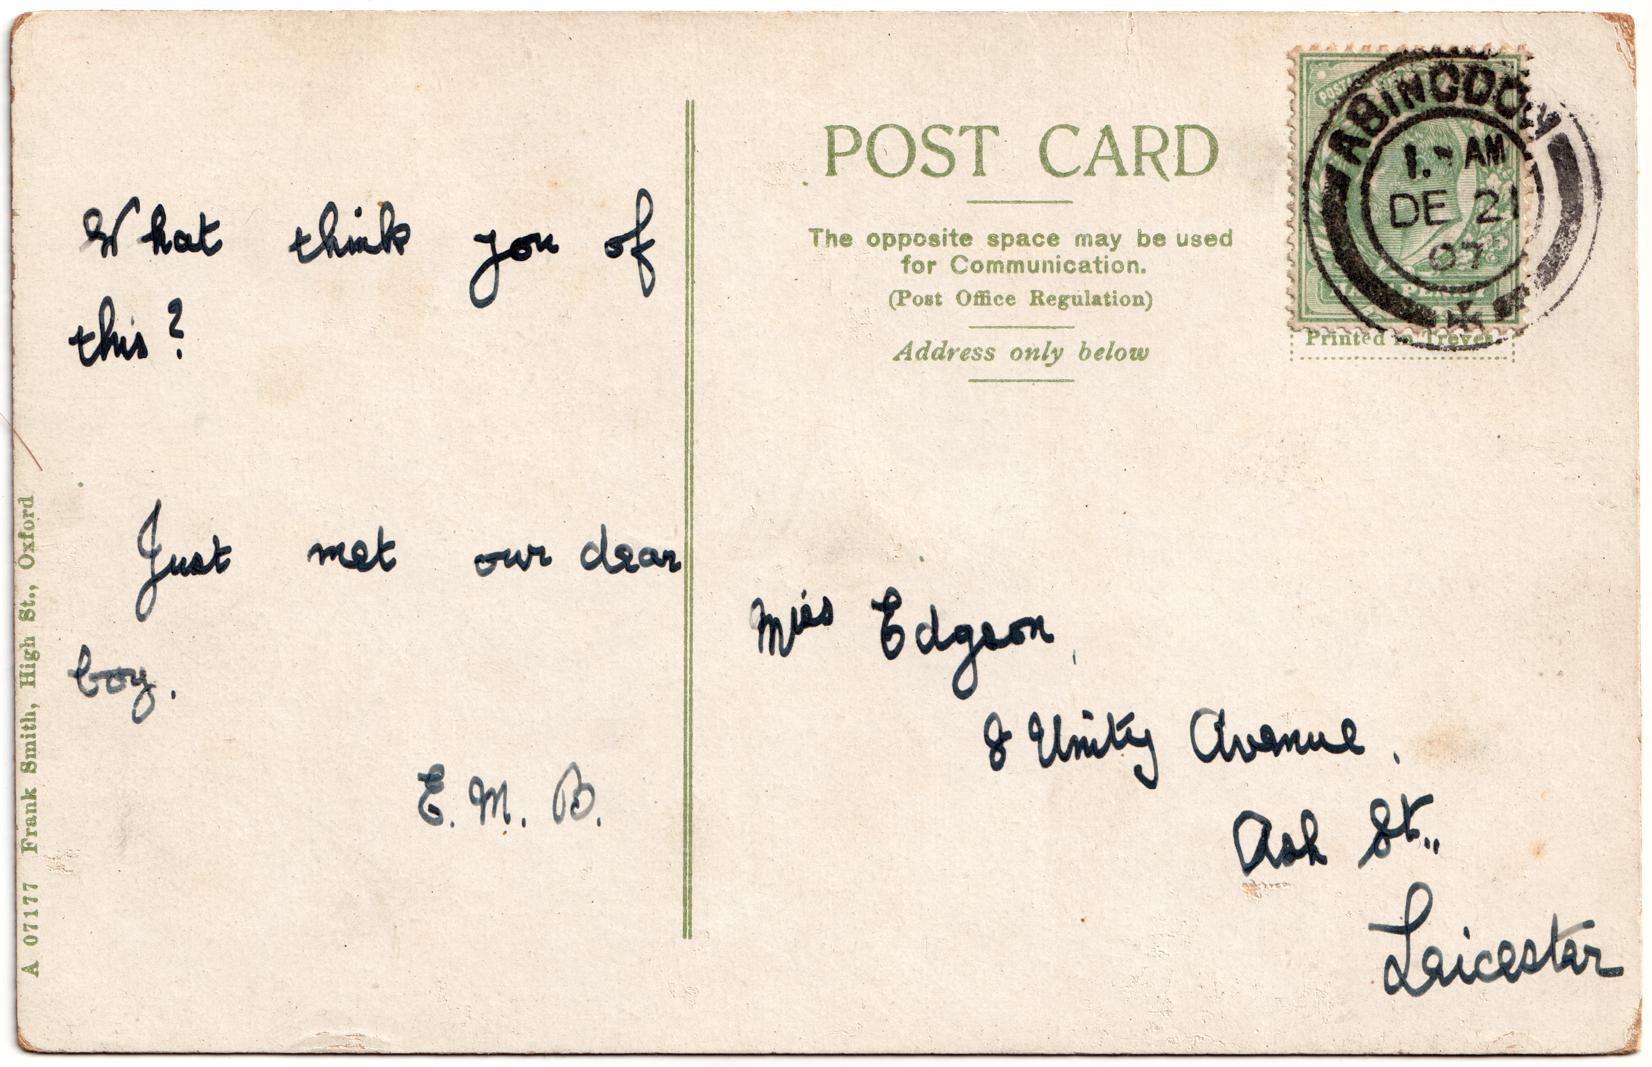 What think you of
this?
Just met our dear
boy.
E. M. B.
A 07177 Frank Smith, High St., Oxford
POST CARD
The opposite space may be used
for Communication.
(Post Office Regulation)
Address only below
ABINGDON
AM
DE 21
07
Printed in Treves.
Miss Edgson,
8 Unity Avenue,
Ash St.,
Leicester